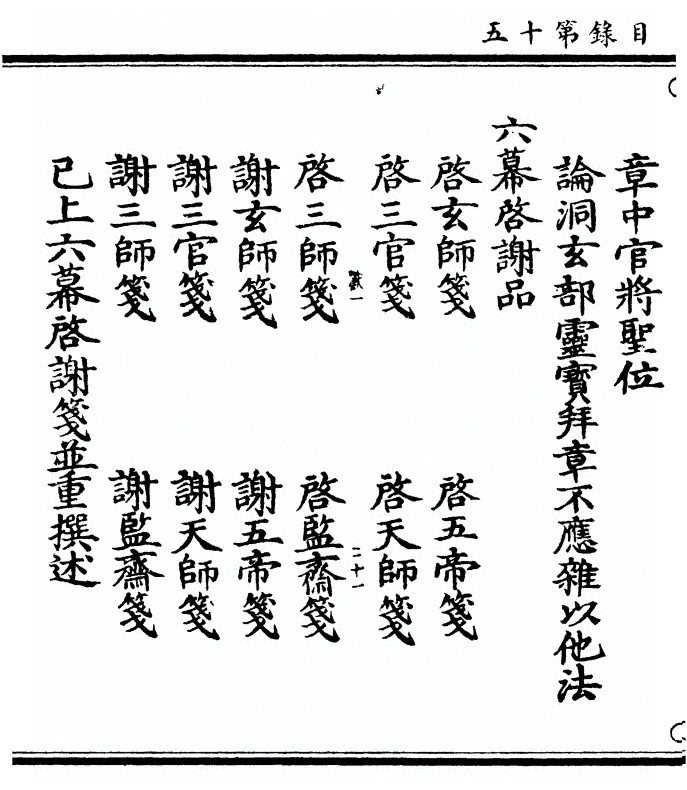 目錄第十五
章中官將聖位
論洞玄部靈寶拜章不應雜以他法
六幕啓謝品
啓玄師箋 啓五帝箋
啓三官箋 啓天師箋
二十一
啓三師箋 啓監齋箋
謝玄師箋 謝五帝箋
謝三官箋 謝天師箋
謝三師箋 謝監齋箋
已上六幕啓謝箋並重撰述